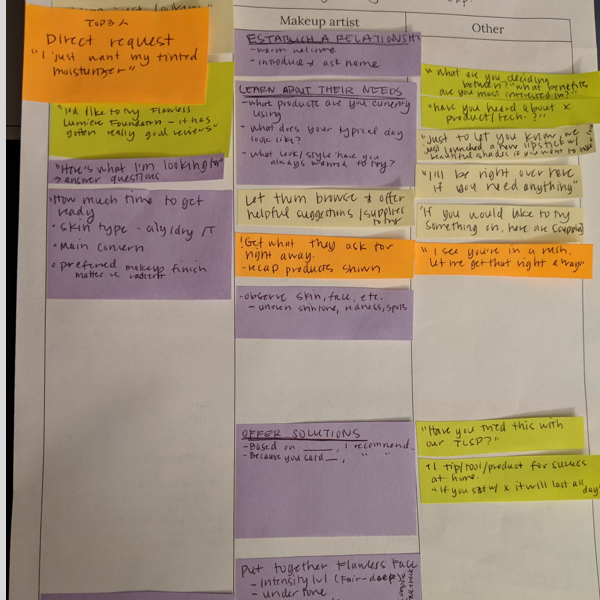 Makeup artist
Other
TOP 3 A
Direct request
"I just want my tinted
moisturizer"
"I'd like to try Flawless
Lumiere Foundation - it has
gotten really good reviews"
"Here's what I'm looking for"
→ answer questions
• How much time to get
ready
• skin type - oily/dry/T
• main concern
• preferred makeup finish
matte vs radiant
ESTABLISH A RELATIONSHI
- warm welcome
- introduce & ask name
LEARN ABOUT THEIR NEEDS
- what products are you currently
using
- what does your typical day
look like?
- what look/style have you
always wanted to try?
Let them browse & offer
helpful suggestions/supplies
to try
! Get what they ask for
right away.
- recap products shown
- observe skin, face, etc.
- uneven skintone, redness, spots
OFFER SOLUTIONS
- Based on ____, I recommend
- Because you said __, " "
Put together Flawless Face
- intensity lvl (fair-deep)
- undertone
"what are you deciding
between?" "what benefits
are you most interested in?"
"have you heard about x
product/tech.?"
"Just to let you know, we
just launched a new lipstick w/
beautiful shades if you want to
"I'll be right over here
if you need anything"
"If you would like to try
something on, here are
"I see you're in a rush,
let me get that right away"
"Have you tried this with
our TLSP?"
"1 tip/tool/product for success
at home.
"If you set w/ x it will last all day